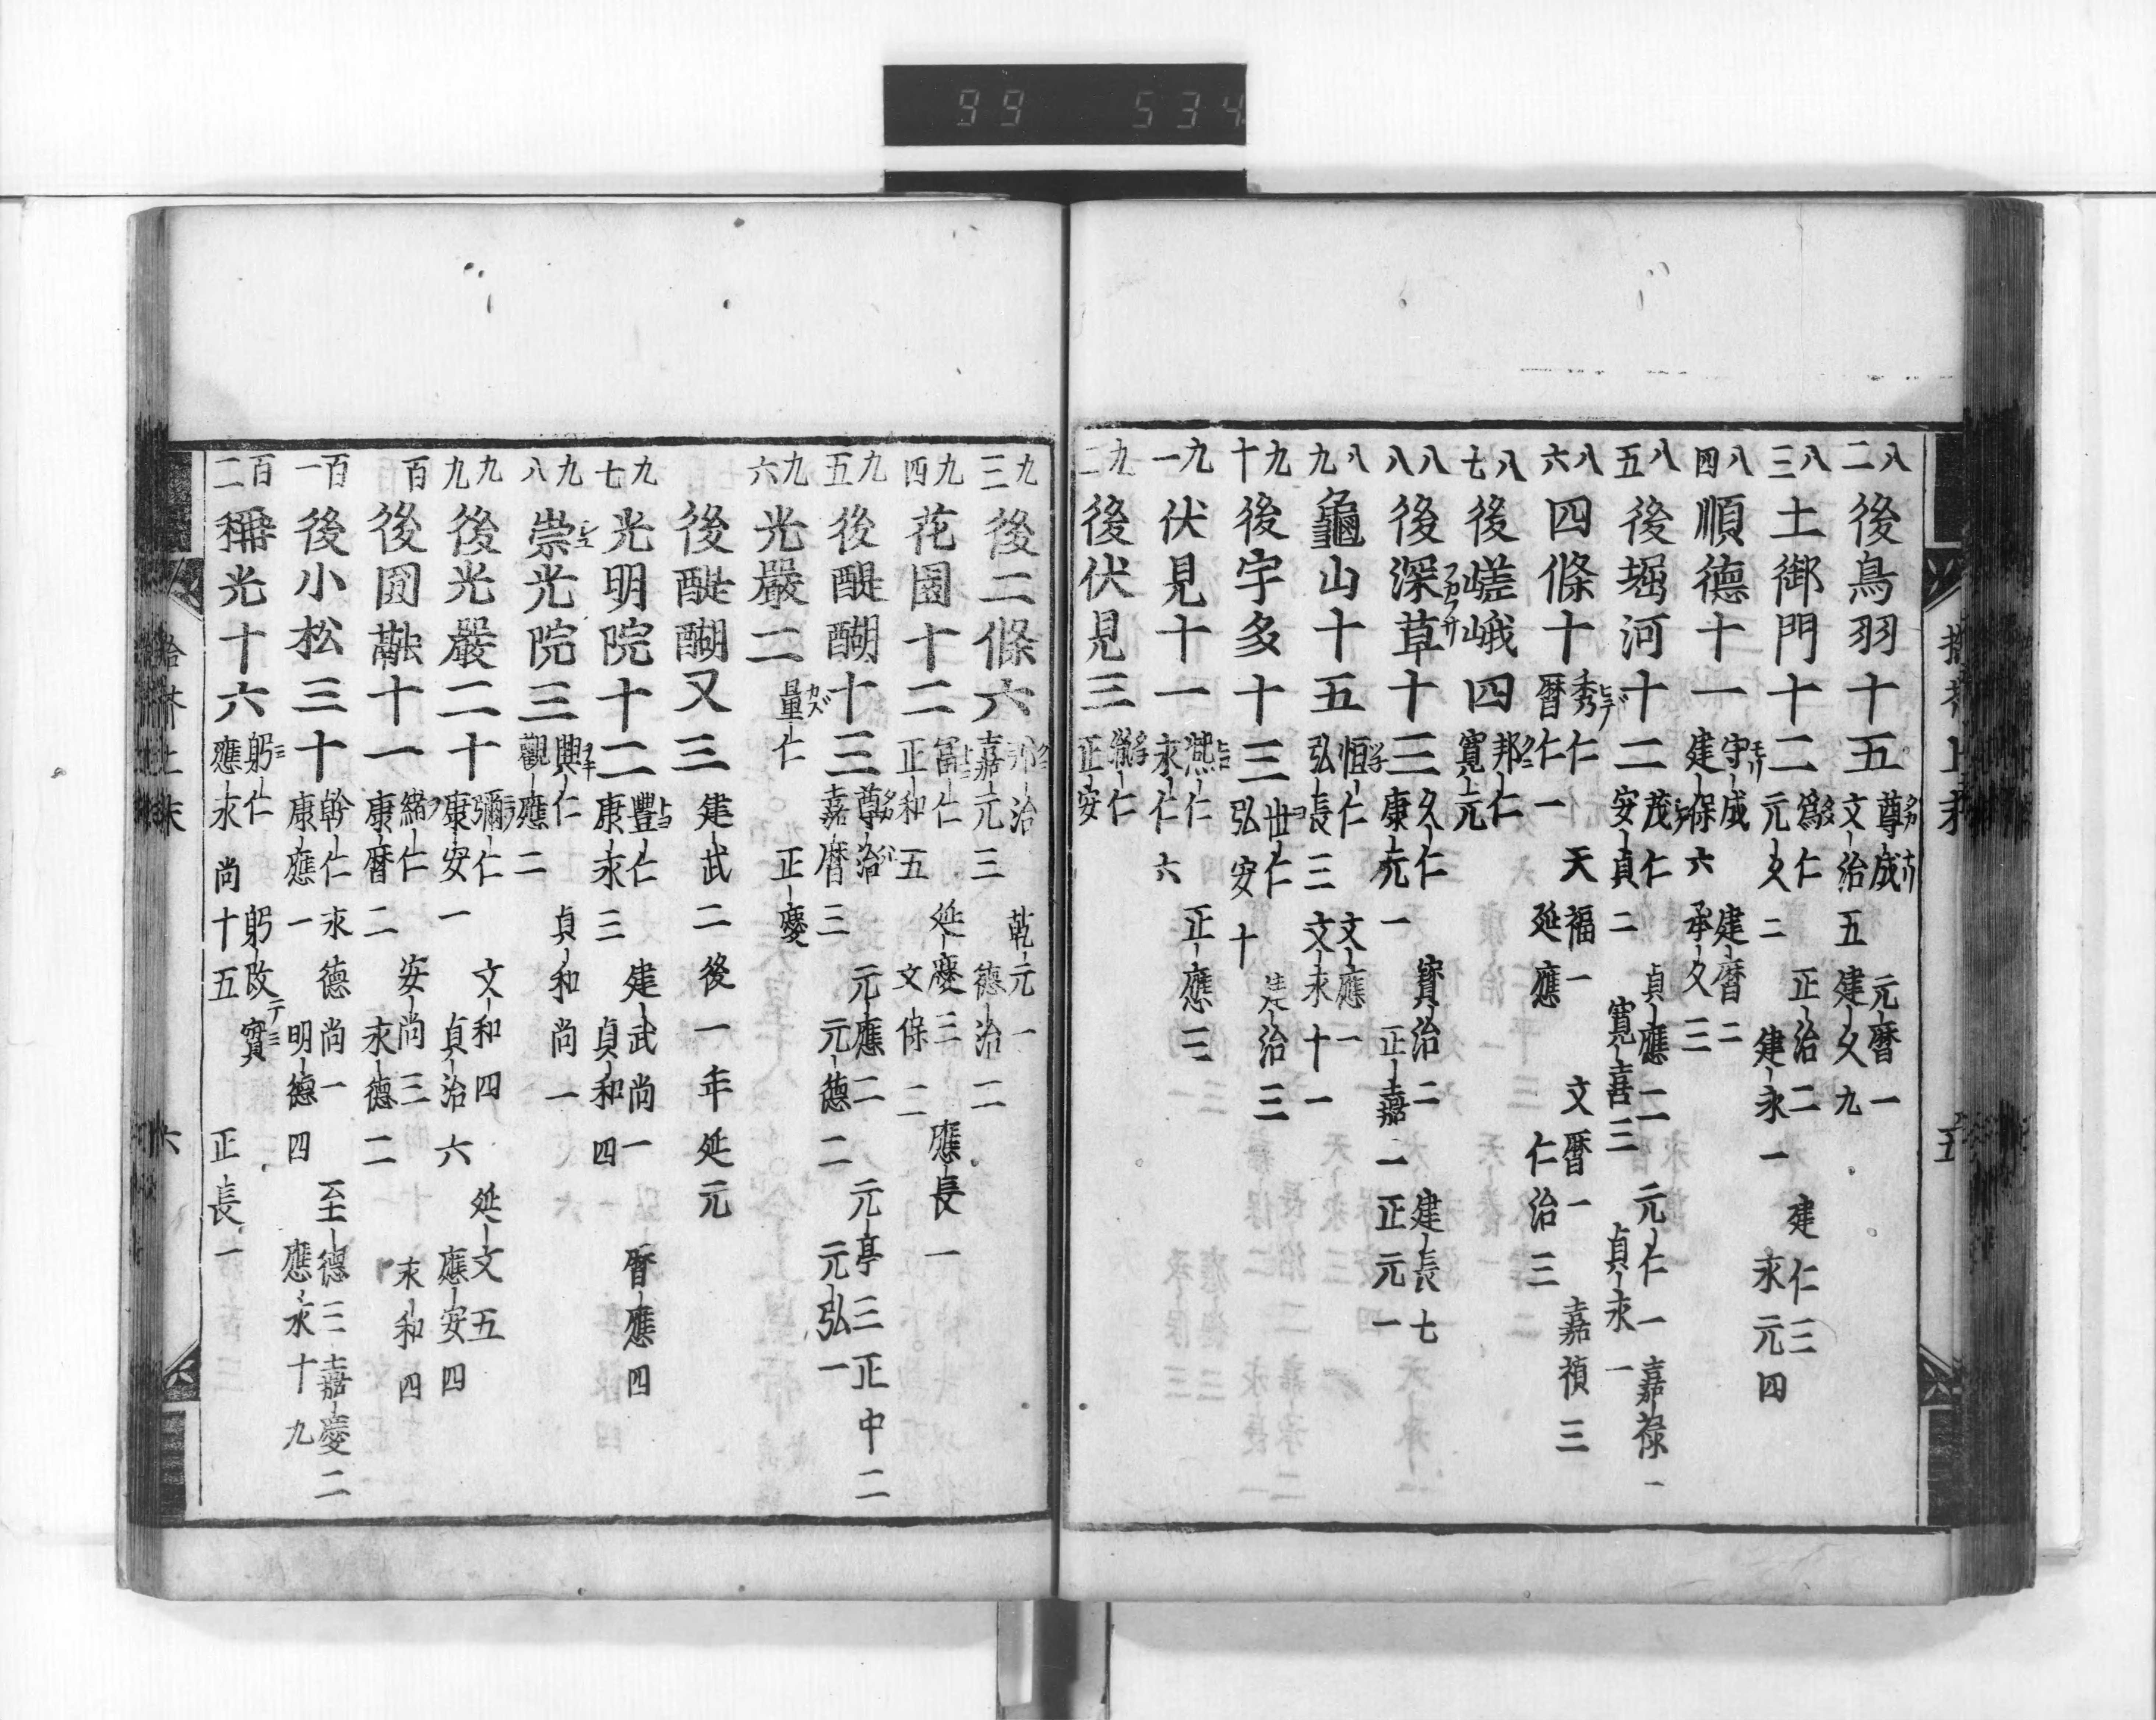 99 534
八二 後鳥羽十五 尊成 元暦一
文治五 建久九
八三 土御門十二 為仁 正治二 建仁三
元久二 建永一 承元四
八四 順德十一 守成 建暦二
建保六 承久三
八五 後堀河十二 茂仁 貞應二 元仁一 嘉祿一
安貞二 寛喜三 貞永一
八六 四條十 秀仁 天福一 文暦一 嘉禎三
暦仁一 延應 仁治三
八七 後嵯峨四 邦仁
寛元
八八 後深草十三 久仁 寳治二 建長七
康元一 正嘉一 正元一
八九 龜山十五 恒仁 文應一
弘長三 文永十一
九十 後宇多十三 世仁 建治三
弘安十
九一 伏見十一 熈仁 正應三
永仁六
九二 後伏見三 胤仁
正安
九三 後二條六 邦治 乾元一
嘉元三 德治二
九四 花園十二 冨仁 延慶三 應長一
正和五 文保二
九五 後醍醐十三 尊治 元應二 元亨三 正中二
嘉暦三 元德二 元弘一
九六 光嚴二 量仁
正慶
後醍醐又三 建武二 後一年延元
九七 光明院十二 豐仁 建武尚一 暦應四
康永三 貞和四
九八 崇光院三 興仁 貞和尚一
觀應二
九九 後光嚴二十 彌仁 文和四 延文五
康安一 貞治六 應安四
百 後圓融十一 緒仁 安尚三 永和四
康暦二 永德二
百一 後小松三十 幹仁 永德尚一 至德三 嘉慶二
康應一 明德四 應永十九
百二 稱光十六 躬仁 躬改實
應永尚十五 正長一